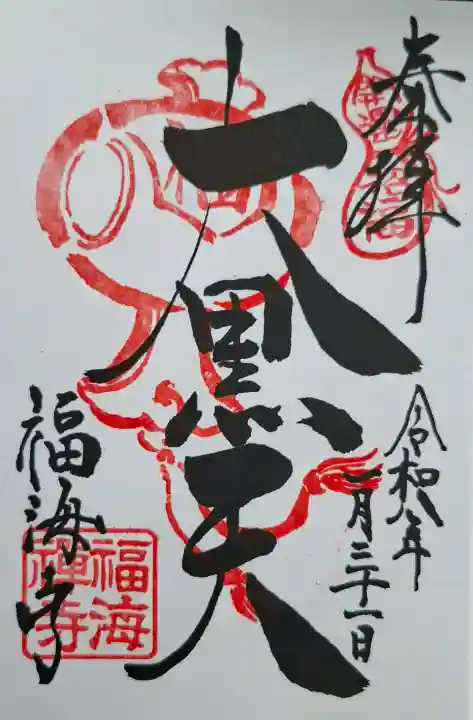 奉拝
令和八年
一月三十一日
大黒天
福海寺
福海
禅寺